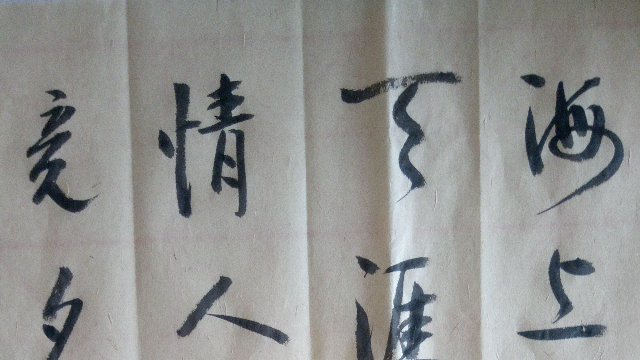 海上
天涯
情人
竟夕